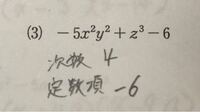 (3) －5x²y²＋z³－6
次数 4
定数項 －6